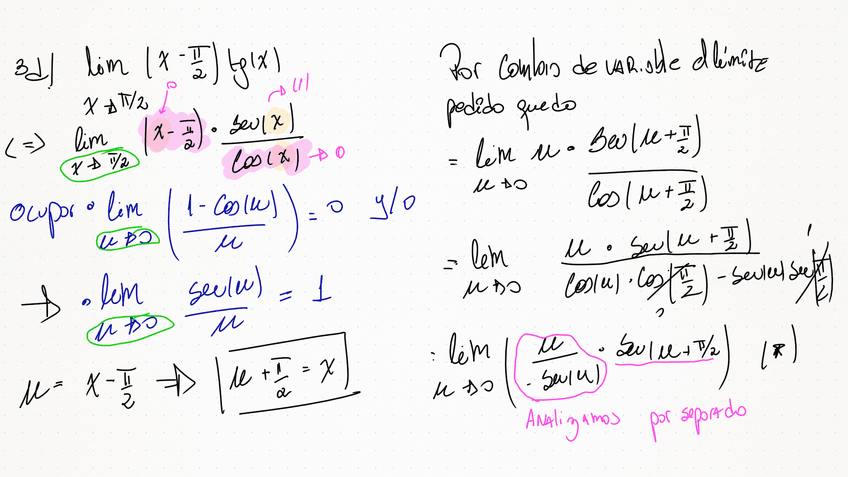 3d) lim (x - π/2) tg(x)
x→π/2
0
→ (1)
<=> lim (x - π/2) • sen(x)
x→π/2 cos(x) → 0
Ocupar • lim (1 - cos(u) / u) = 0 y/o
u→0
→ • lim sen(u) / u = 1
u→0
u = x - π/2 ⇒ u + π/2 = x
Por cambio de variable el límite
pedido queda
= lim u • sen(u + π/2)
u→0 cos(u + π/2)
= lim u • sen(u + π/2)
u→0 cos(u) • cos(π/2) - sen(u) sen(π/2)
= lim (u / -sen(u) • sen(u + π/2)) (*)
u→0
Analizamos por separado